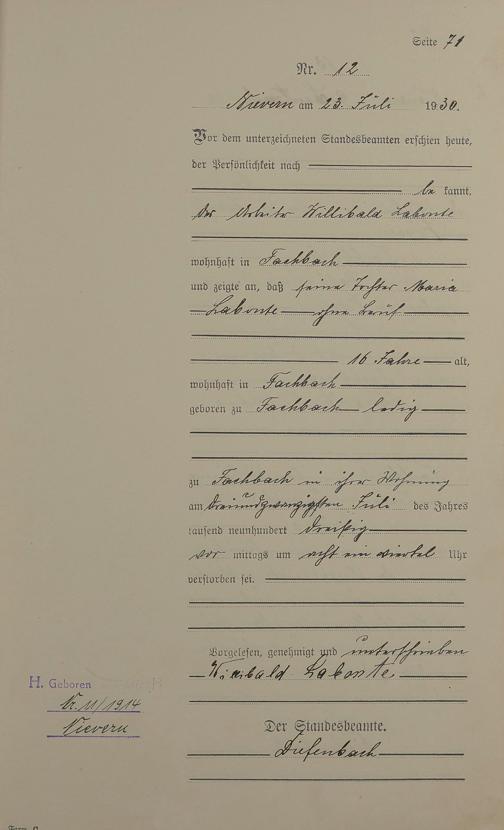 Seite 71
Nr. 12
Nievern am 23. Juli 1930.
Vor dem unterzeichneten Standesbeamten erschien heute,
der Persönlichkeit nach
be kannt,
der Arbeiter Willibald Labonte
wohnhaft in Fachbach
und zeigte an, daß seine Tochter Maria
Labonte ohne Beruf
16 Jahre alt,
wohnhaft in Fachbach
geboren zu Fachbach ledig
zu Fachbach in ihrer Wohnung
am dreiundzwanzigsten Juli des Jahres
tausend neunhundert dreißig
vor mittags um acht ein viertel Uhr
verstorben sei.
Vorgelesen, genehmigt und unterschrieben
Willibald Labonte
H. Geboren
Nr. 11/1914
Nievern
Der Standesbeamte.
Diefenbach